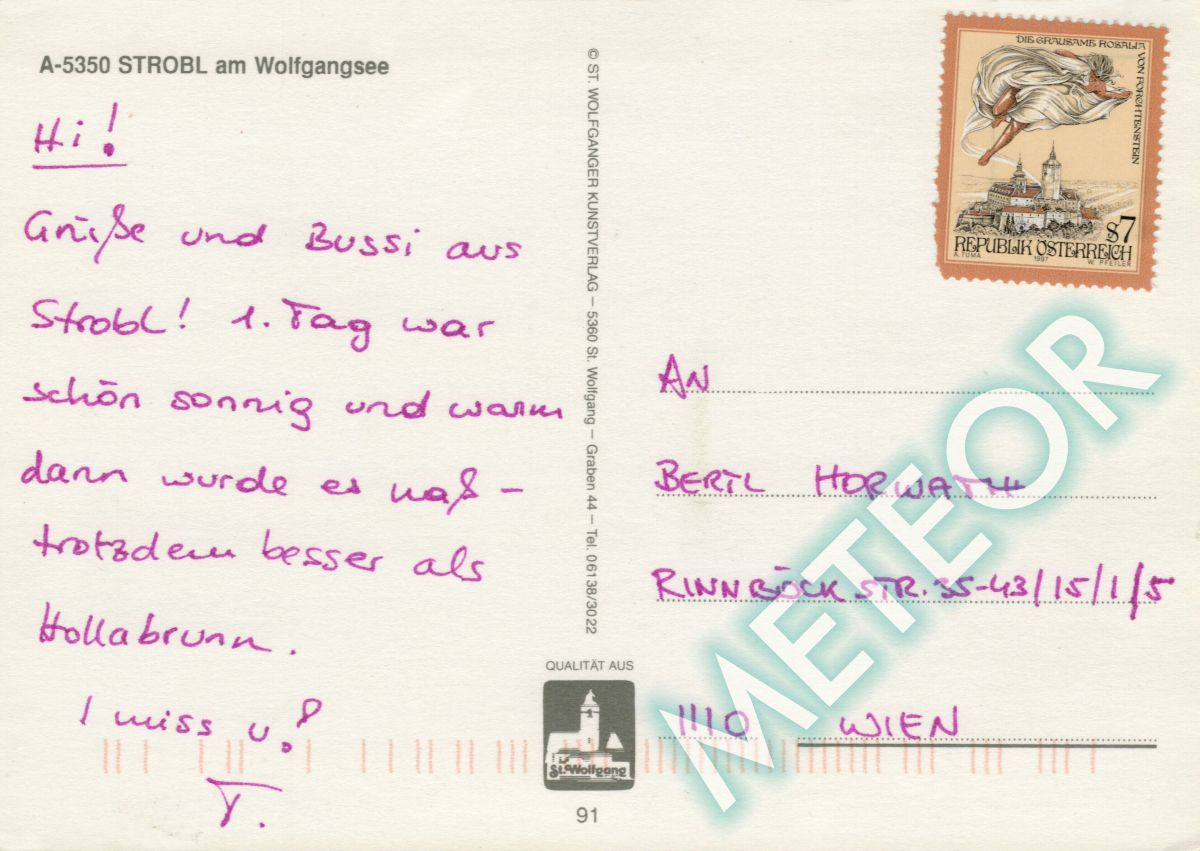 A-5350 STROBL am Wolfgangsee
Hi!
Grüße und Bussi aus
Strobl! 1. Tag war
schön sonnig und warm
dann wurde es naß –
trotzdem besser als
Hollabrunn.
I miss u!
T.
© ST. WOLFGANGER KUNSTVERLAG – 5360 St. Wolfgang – Graben 44 – Tel. 06138/3022
QUALITÄT AUS
St. Wolfgang
91
DIE GRAUSAME ROSALIA
VON FORCHTENSTEIN
S7
REPUBLIK ÖSTERREICH
A. TUMA 1997 W. PFEILER
AN
BERTL HORWATH
RINNBÖCKSTR. 35-43/15/1/5
1110 WIEN
METEOR